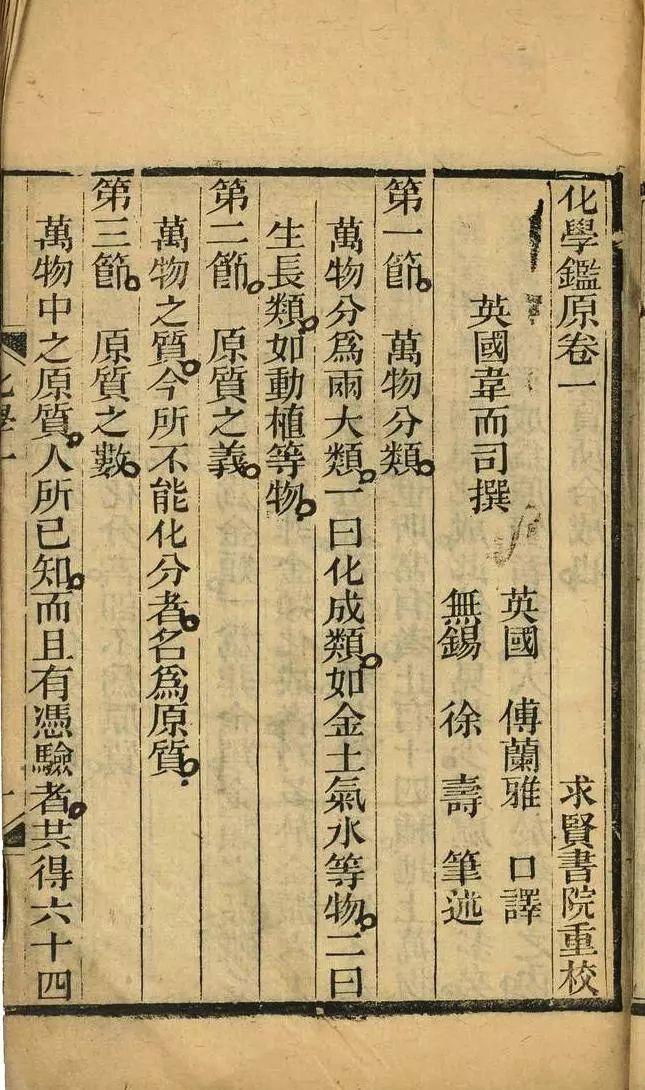 化學鑑原卷一 求賢書院重校
英國 傅蘭雅 口譯
英國韋而司撰
無錫 徐壽 筆述
第一節。萬物分類。
萬物分爲兩大類。一曰化成類。如金土氣水等物。二曰
生長類。如動植等物。
第二節。原質之義。
萬物之質。今所不能化分者。名爲原質。
第三節。原質之數。
萬物中之原質。人所已知。而且有憑驗者。共得六十四
化學一